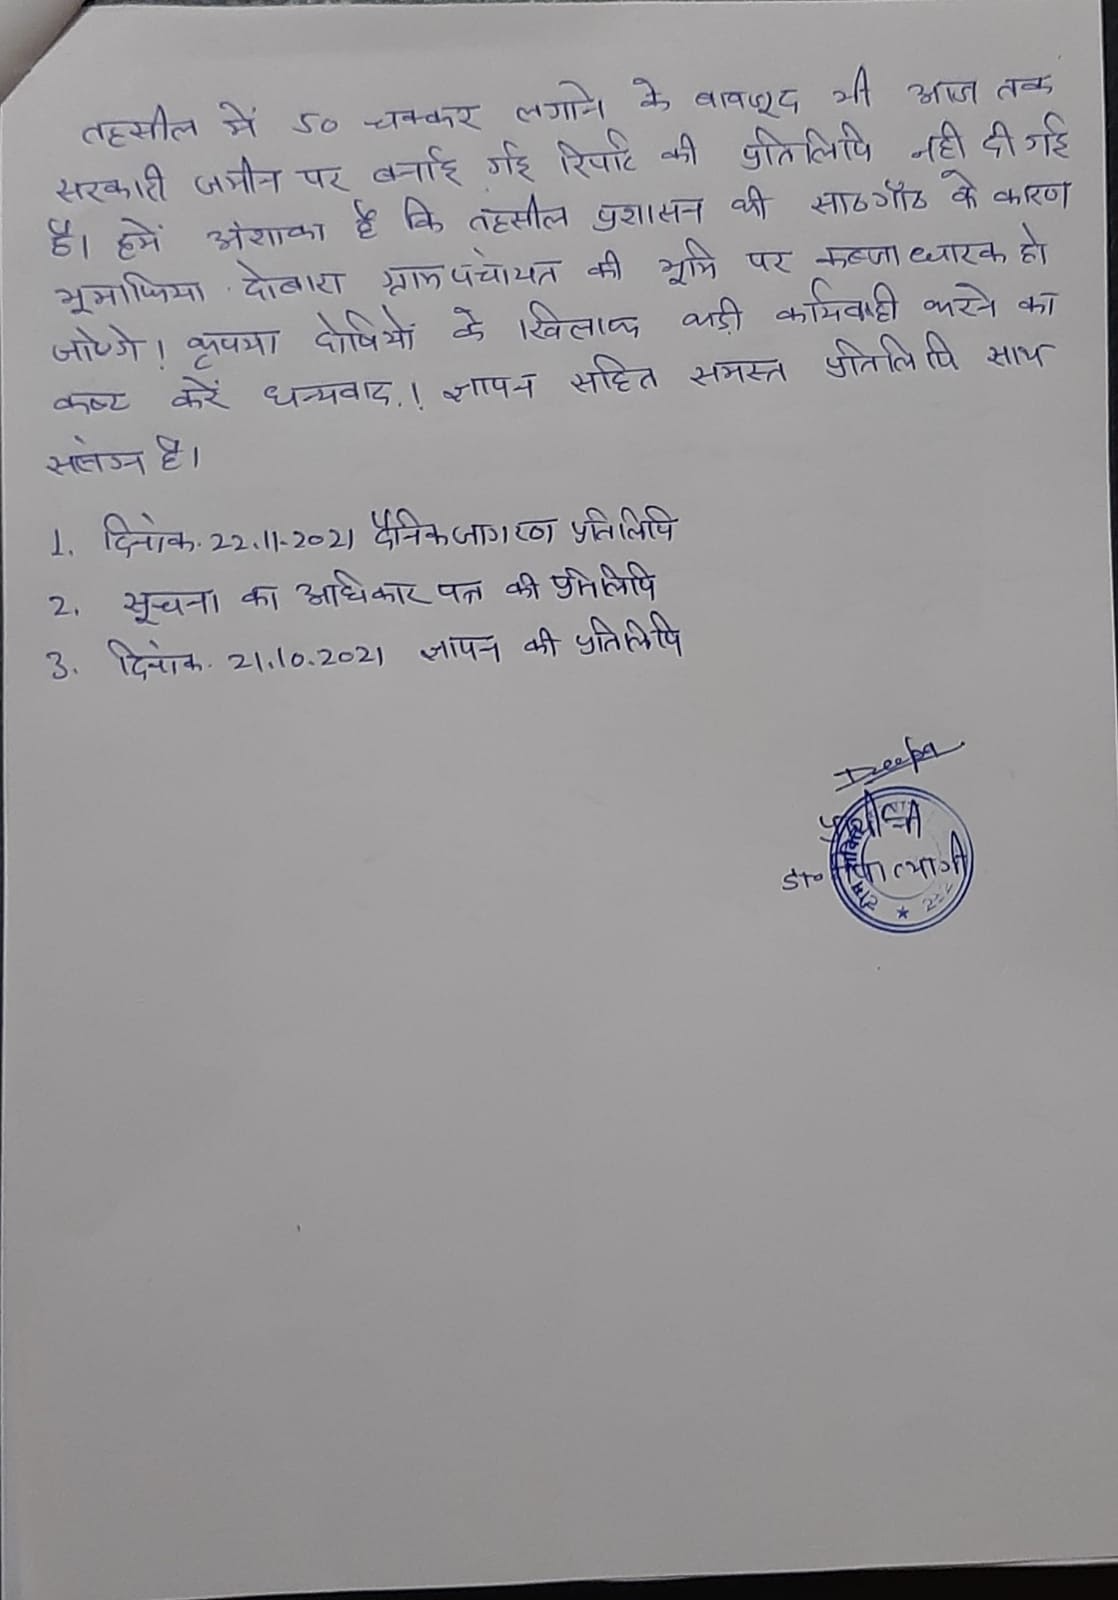 तहसील में 50 चक्कर लगाने के वावजूद भी आज तक
सरकारी जमीन पर बनाई गई रिर्पाट की प्रतिलिपि नही दी गई
है। हमें अंशाका है कि तहसील प्रशासन की साठगाँठ के कारण
भूमाफिया दोबारा ग्राम पंचायत की भूमि पर कब्जा धारक हो
जाएगे। कृपया दोषियों के खिलाफ कड़ी कार्यवाही करने का
कष्ट करें धन्यवाद.! ज्ञापन सहित समस्त प्रतिलिपि साथ
सलंग्न है।
1. दिनांक. 22.11.2021 दैनिक जागरण प्रतिलिपि
2. सूचना का अधिकार पत्र की प्रतिलिपि
3. दिनांक. 21.10.2021 ज्ञापन की प्रतिलिपि
Deepa
त्यागी